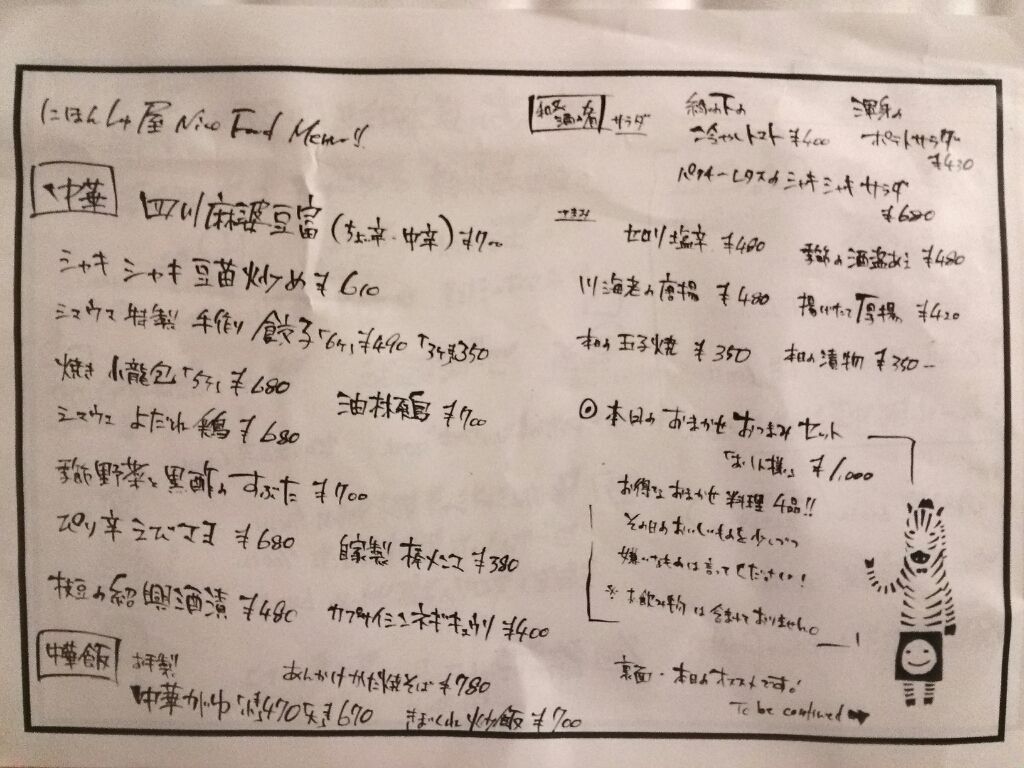 にほんしゅ屋 Nico Food Menu!!
中華
四川麻婆豆富(ちょい辛・中辛)¥700
シャキシャキ豆苗炒め ¥610
シマウマ特製 手作り餃子「6ケ」¥490「3ケ」¥350
焼き小龍包「5ケ」¥680
油淋鶏 ¥700
シマウマ よだれ鶏 ¥680
季節野菜と黒酢のすぶた ¥700
ピリ辛えびマヨ ¥680
自家製 棒メンマ ¥380
枝豆の紹興酒漬 ¥480
カプサイシンネギキュウリ ¥400
中華飯
お手製
中華がゆ ¥470 ¥670
あんかけかた焼そば ¥780
きまぐれ炒飯 ¥700
サラダ
縁の下の
冷やしトマト ¥400
渾身の
ポテトサラダ
¥430
パクチーレタスのシャキシャキサラダ
¥680
つまみ
セロリ塩辛 ¥480
季節の酒盗あえ ¥480
川海老の唐揚 ¥480
揚げたて厚揚 ¥420
本日の玉子焼 ¥350
本日の漬物 ¥350ー
◎本日のおまかせおつまみセット
¥1,000
お得なおまかせ料理4品!!
その日のおいしいものを少しづつ
嫌いなものは言ってください!
※お飲み物は含まれておりません。
裏面・本日のオススメです!
To be continued➡